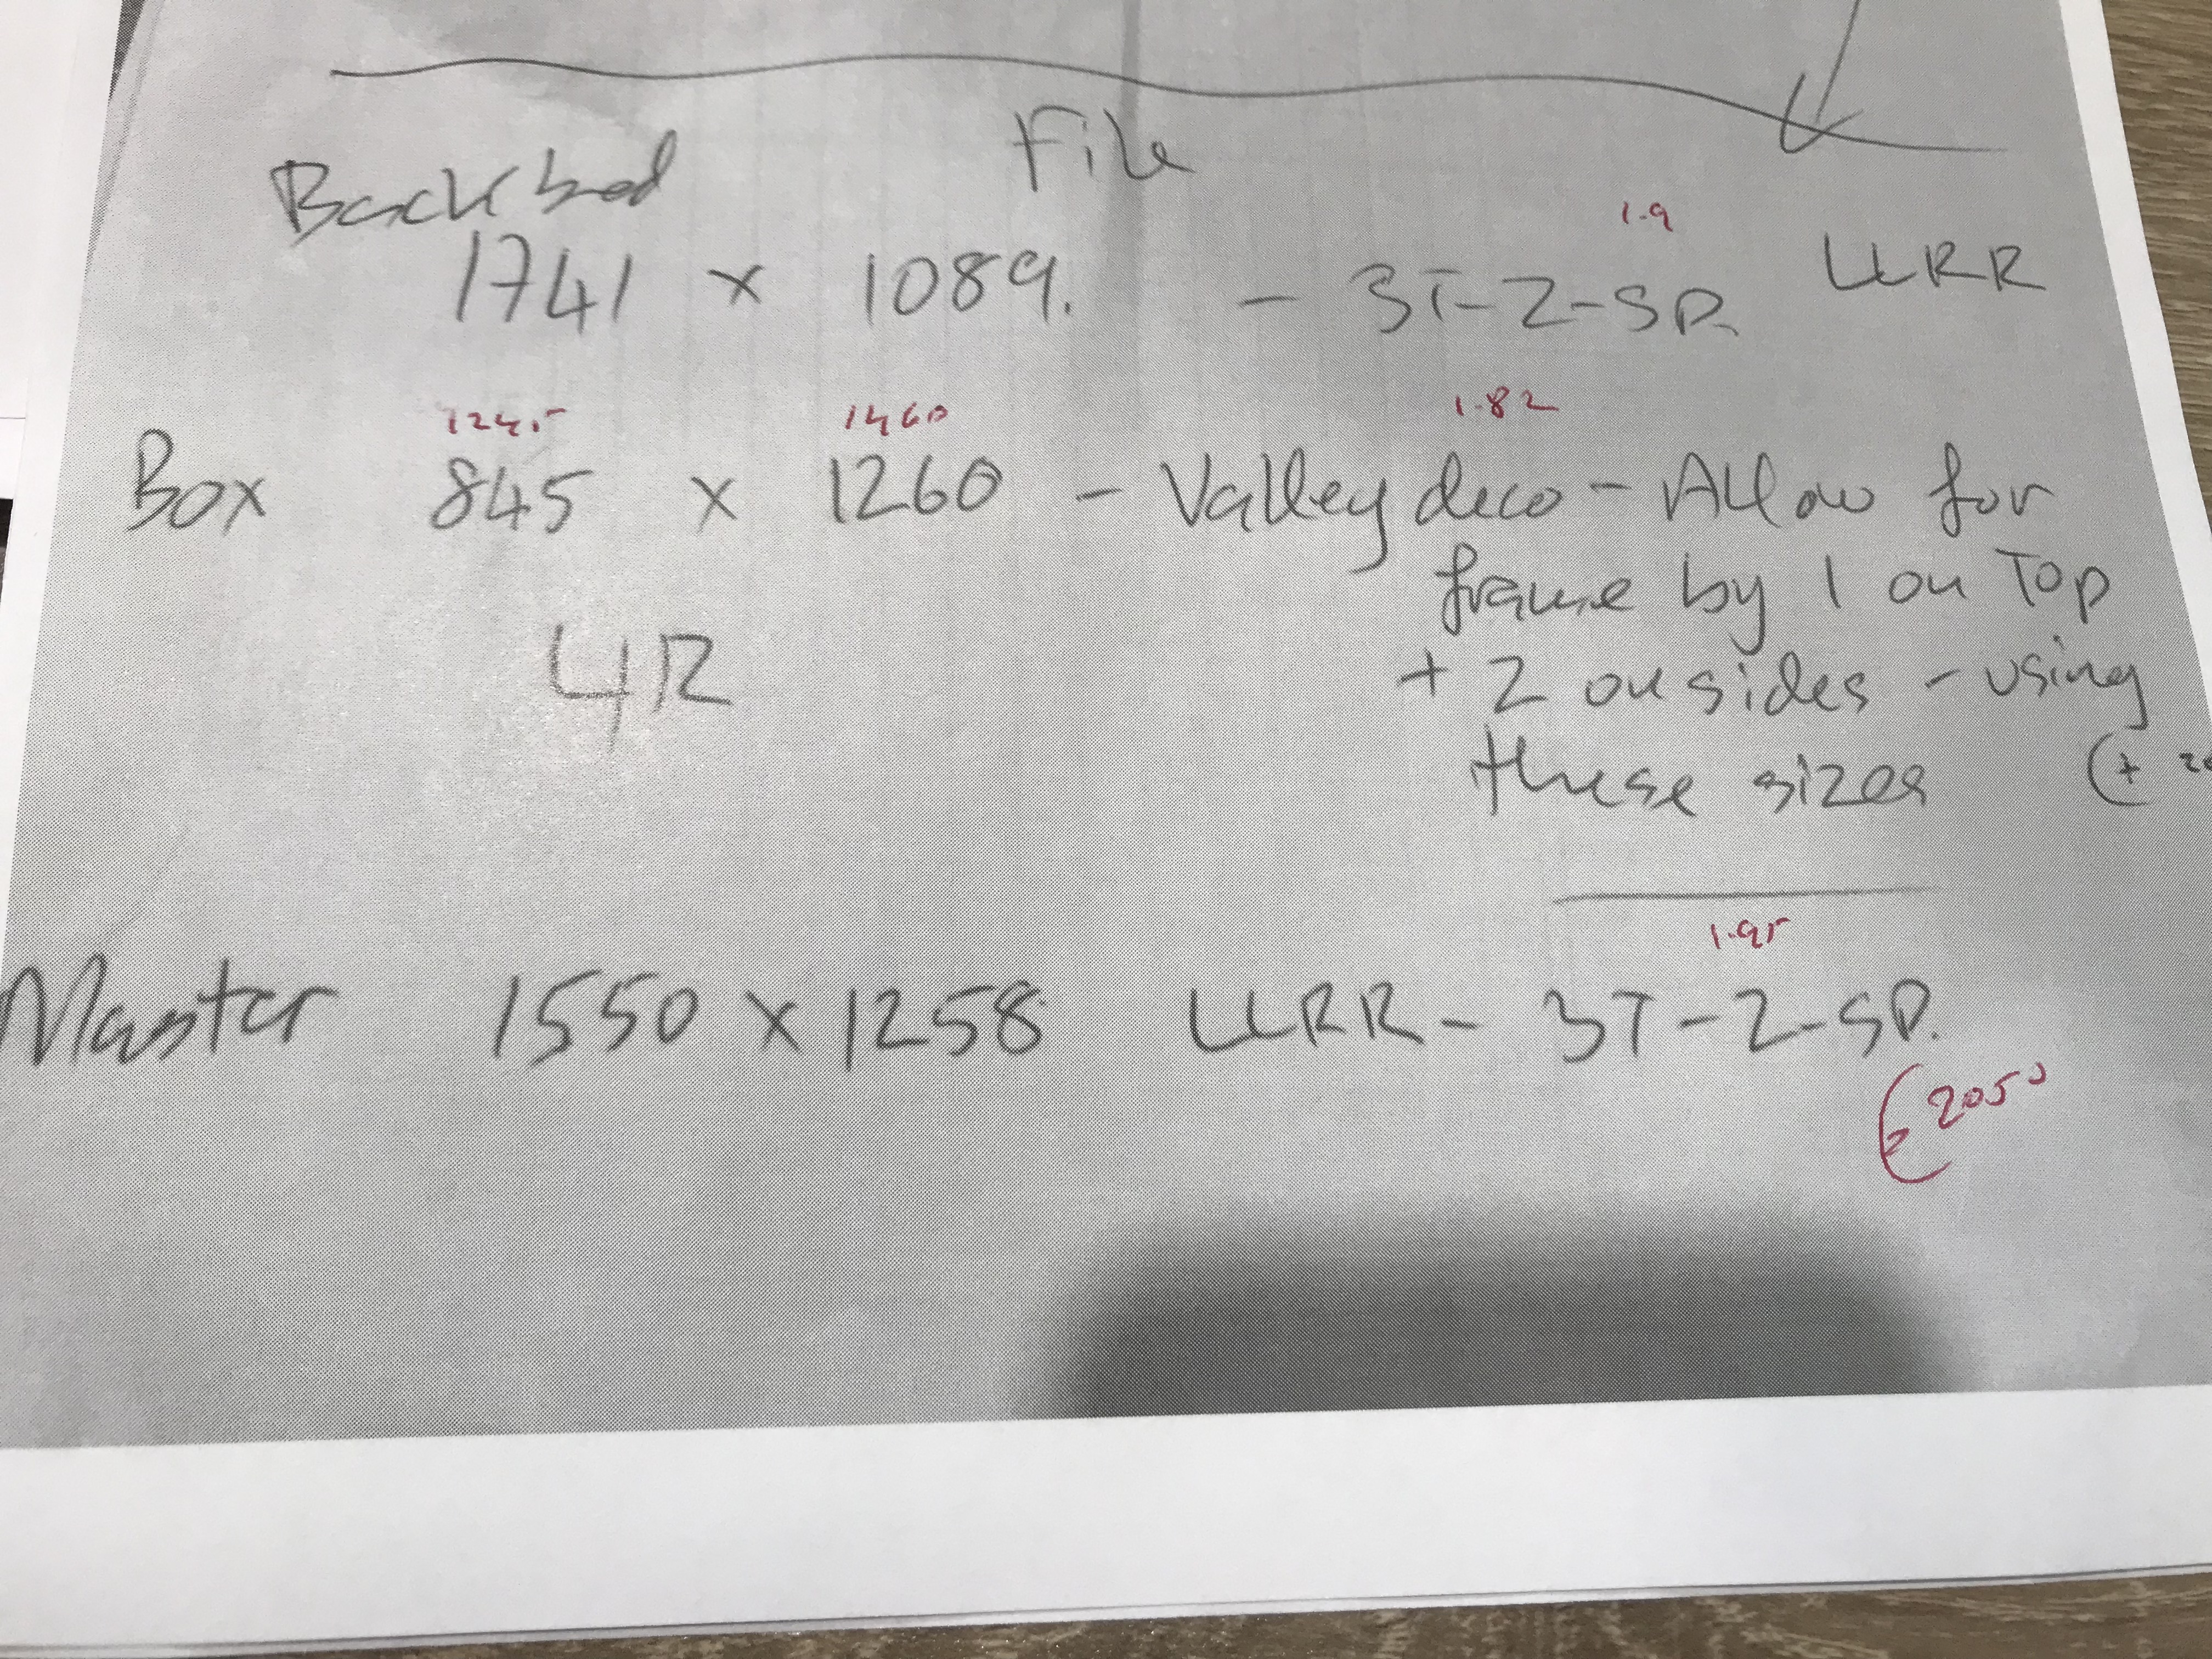 File
Back bed
1.9
1741 x 1089. - 3T-Z-SP. LLRR
1245 1460 1.82
Box 845 x 1260 - Valley deco - Allow for
frame by 1 on Top
4R
+ 2 on sides - using
these sizes (+ 20
1.95
Master 1550 x 1258 LLRR - 3T-Z-SP.
2050